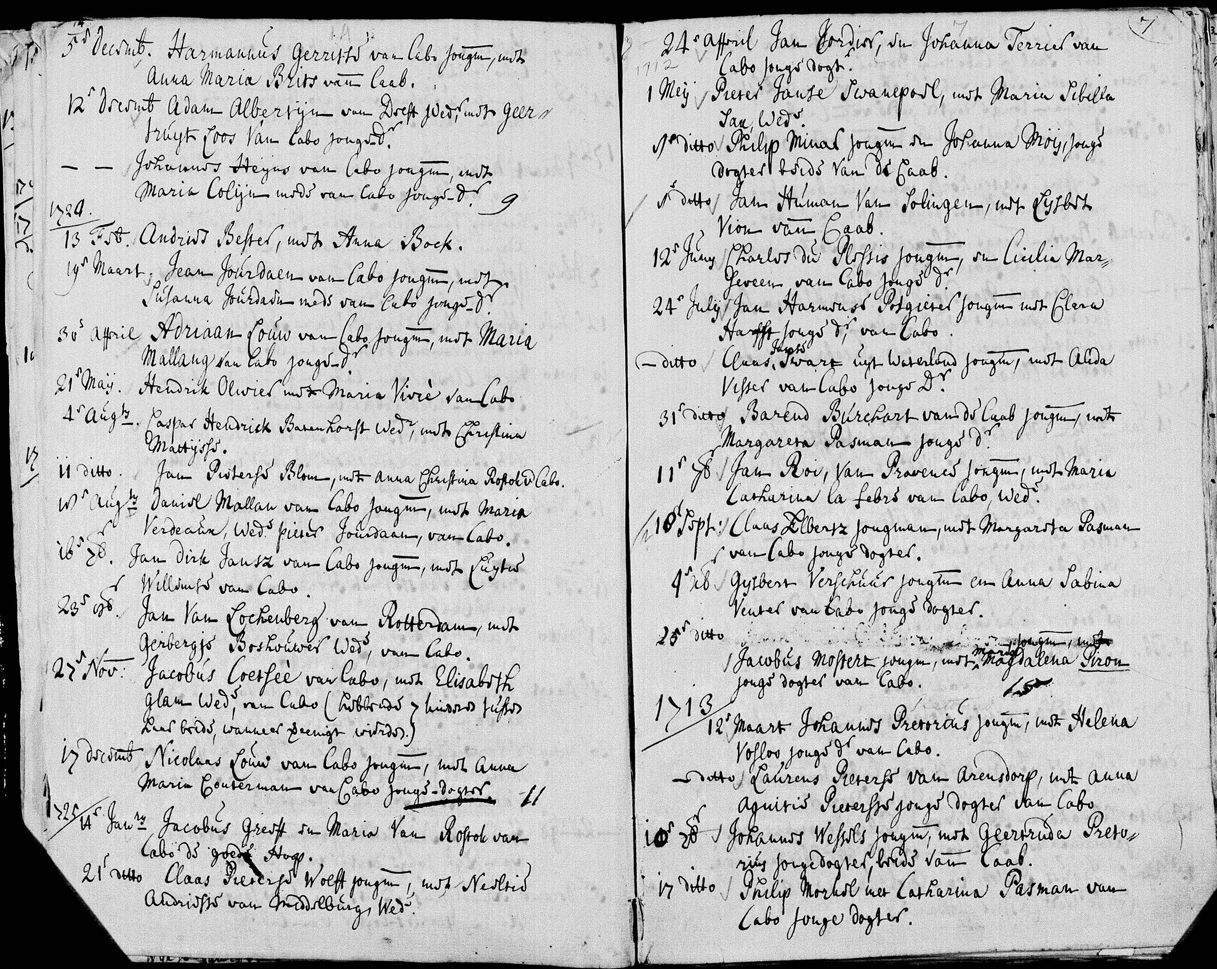 5e Decemb. Harmannus Gerritse van Cabo jongm, met
Anna Maria Brits van Caab.
12e Decemb Adam Albertijn van Delft Wedr, met Geer
truyt Loos van Cabo jonge Dr.
— — Johannes Heyns van Cabo jongm, met
Maria Colijn mede van Cabo jonge Dr. 9
1724.
13 Feb. Andries Bester, met Anna Bock.
19e Maart, Jean Jourdaen van Cabo jongm, met
Susanna Jourdaen mede van Cabo jonge Dr.
30e April Adriaan Louw van Cabo jongm, met Maria
Mallang van Cabo jonge Dr.
21e Maij. Hendrik Olivier met Maria Vivie van Cabo
4e Aug. Caspar Hendrick Batenhorst Wedr, met Christina
Mattijsse.
11 ditto. Jan Pieterse Blom, met Anna Christina Rostok v Cabo.
Aug Daniel Mallan van Cabo jongm, met Maria
Verdeaux, Wede Pieter Jourdaan, van Cabo.
16e 7br. Jan Dirk Jansz van Cabo jongm, met Luytie
Willemse van Cabo.
23e Jan Van Lochenberg van Rotterdam, met
Gerbregje Boshouwer Wede, van Cabo.
27e Nov. Jacobus Coetseé van Cabo, met Elisabeth
Glam Wede, van Cabo (hebbende 7 kinderen tussen
haar beide, wanneer vereenigt wierden)
17 Decemb Nicolaas Louw van Cabo jongm, met Anna
Maria Conterman van Cabo jonge dogter 11
1725
14e Janry Jacobus Greeff en Maria Van Rostok van
Cabo de goede Hoop.
21e ditto Claas Pieterse Wolff jongm, met Neeltie
Andriesse van Middelburg, Wede.
7
24e April Jan Cordier, en Johanna Terrier van
1712
Cabo jonge dogtr.
1 Meij Pieter Janse Swanepoel, met Maria Sibilla
Wede.
1e ditto Philip Minar jongm en Johanna Moij, jonge
dogter beide van de Caab.
ditto Jan Human van Solingen, met Lijsbet
Vion van Caab.
12e Juny Charles du Plessis jongm, en Cicilia Mar-
seveen van Cabo jonge dr.
24e July Jan Harmense Potgieter jongm met Clera
Harfft jonge dr van Cabo
— ditto Claas Janse Swart uyt Waterland jongm, met Alida
Visser van Cabo jonge Dr.
31e ditto Barend Burchart van de Caab jongm, met
Margareta Pasman jonge dr.
11e 7br Jan Roi, van Provence jongm, met Maria
Catharina la febre van Cabo, Wede.
18 Sept: Claas Elbertz jongman, met Margareta Pasman
van Cabo jonge dogter.
4e xbr Gysbert Verschuer jongm en Anna Sabina
Venter van Cabo jonge dogter.
25e ditto jongm, met
Jacobus Mostert jongm, met Maria Magdalena Piron
jonge dogter van Cabo. 15
1713
12e Maart Johannes Pretorius jongm, met Helena
Vosloo jonge dr van Cabo.
— ditto Laurens Pieterse van Arensdorp, met Anna
Agnitie Pieterse jonge dogter van Cabo
10e Johannes Wessels jongm, met Geertruda Preto-
rius jongedogter, beide van Caab.
17 ditto Philip Morkel met Catharina Pasman van
Cabo jonge dogter.